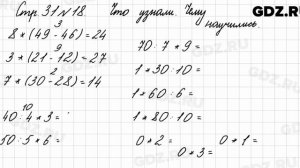 GDZ.RU
Стр. 31 № 18. Что узнали. Чему научились
8 * (49 - 46) = 24
3
3 * (21 - 12) = 27
9
7 * (30 - 28) = 14
2
40 : 4 * 3 =
10
50 : 5 * 6 =
70 : 7 * 9 =
1 * 30 : 10 =
1 * 60 : 6 =
1 * 80 : 10 =
0 * 2 =
0 * 3 =
0 * 1 =